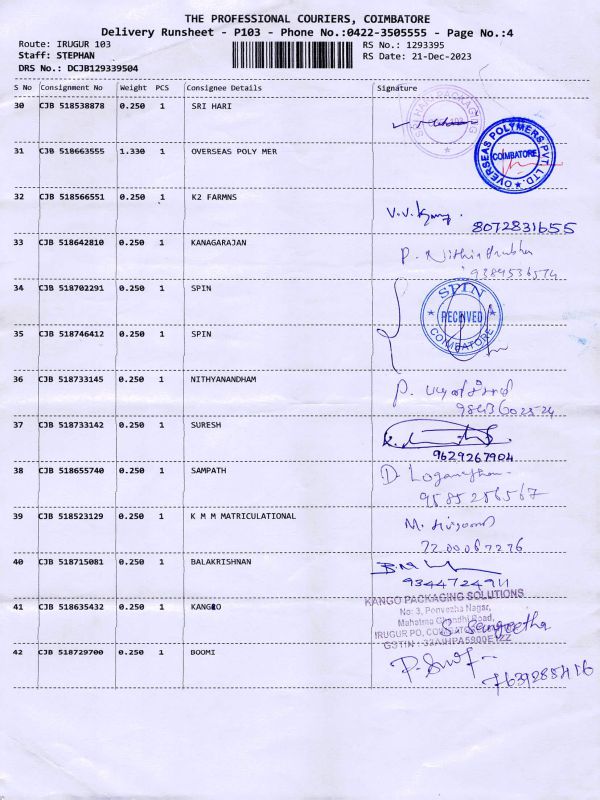 THE PROFESSIONAL COURIERS, COIMBATORE
Delivery Runsheet - P103 - Phone No.:0422-3505555 - Page No.:4
Route: IRUGUR 103
RS No.: 1293395
Staff: STEPHAN
RS Date: 21-Dec-2023
DRS No.: DCJB129339504
S No Consignment No Weight PCS Consignee Details Signature
30 CJB 518538878 0.250 1 SRI HARI
31 CJB 518663555 1.330 1 OVERSEAS POLY MER
OVERSEAS POLYMERS PVT. LTD.
COIMBATORE
32 CJB 518566551 0.250 1 K2 FARMNS
8072831655
33 CJB 518642810 0.250 1 KANAGARAJAN
9384536574
34 CJB 518702291 0.250 1 SPIN
SPIN
RECEIVED
COIMBATORE
35 CJB 518746412 0.250 1 SPIN
36 CJB 518733145 0.250 1 NITHYANANDHAM
9843602524
37 CJB 518733142 0.250 1 SURESH
9629267904
38 CJB 518655740 0.250 1 SAMPATH
D. Loganathan
9585256567
39 CJB 518523129 0.250 1 K M M MATRICULATIONAL
7200067276
40 CJB 518715081 0.250 1 BALAKRISHNAN
9344724911
41 CJB 518635432 0.250 1 KANGRO
KANGO PACKAGING SOLUTIONS
No: 3, Penvezha Nagar,
Mahatma Ghandhi Road,
IRUGUR PO,
S. Sangeetha
42 CJB 518729700 0.250 1 BOOMI
7639285416